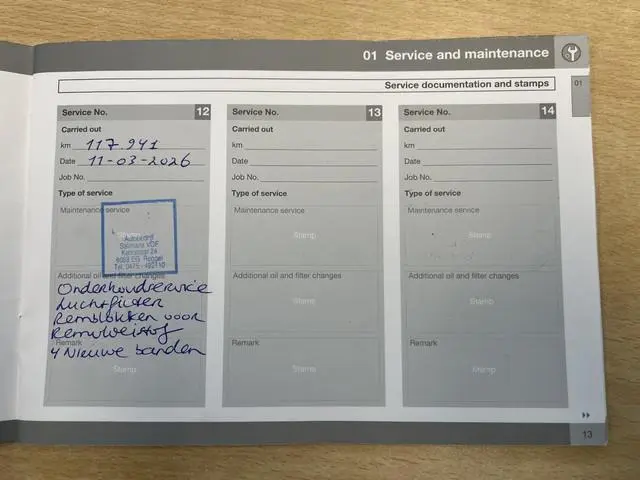 01 Service and maintenance
01
Service documentation and stamps
Service No. 12
Carried out
km 117.941
Date 11-03-2026
Job No.
Type of service
Maintenance service
Stamp
Autobedrijf
Salimans VOF
6088 EG Roggel
Tel. 0475 - 492110
Additional oil and filter changes
Onderhoudservice
Luchtfilter
Remblokken voor
Remvloeistof
Remark
4 Nieuwe banden
Stamp
Service No. 13
Carried out
km
Date
Job No.
Type of service
Maintenance service
Stamp
Additional oil and filter changes
Stamp
Remark
Stamp
Service No. 14
Carried out
km
Date
Job No.
Type of service
Maintenance service
Stamp
Additional oil and filter changes
Stamp
Remark
Stamp
13